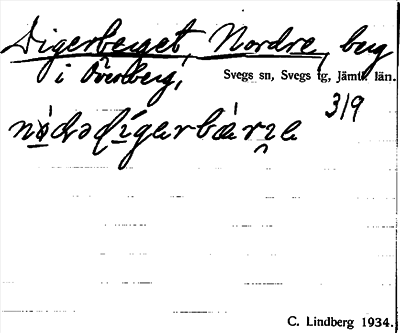 Digerberget, Nordre, berg
i Överberg, Svegs sn, Svegs tg, Jämtl. län.
3/9
C. Lindberg 1934.